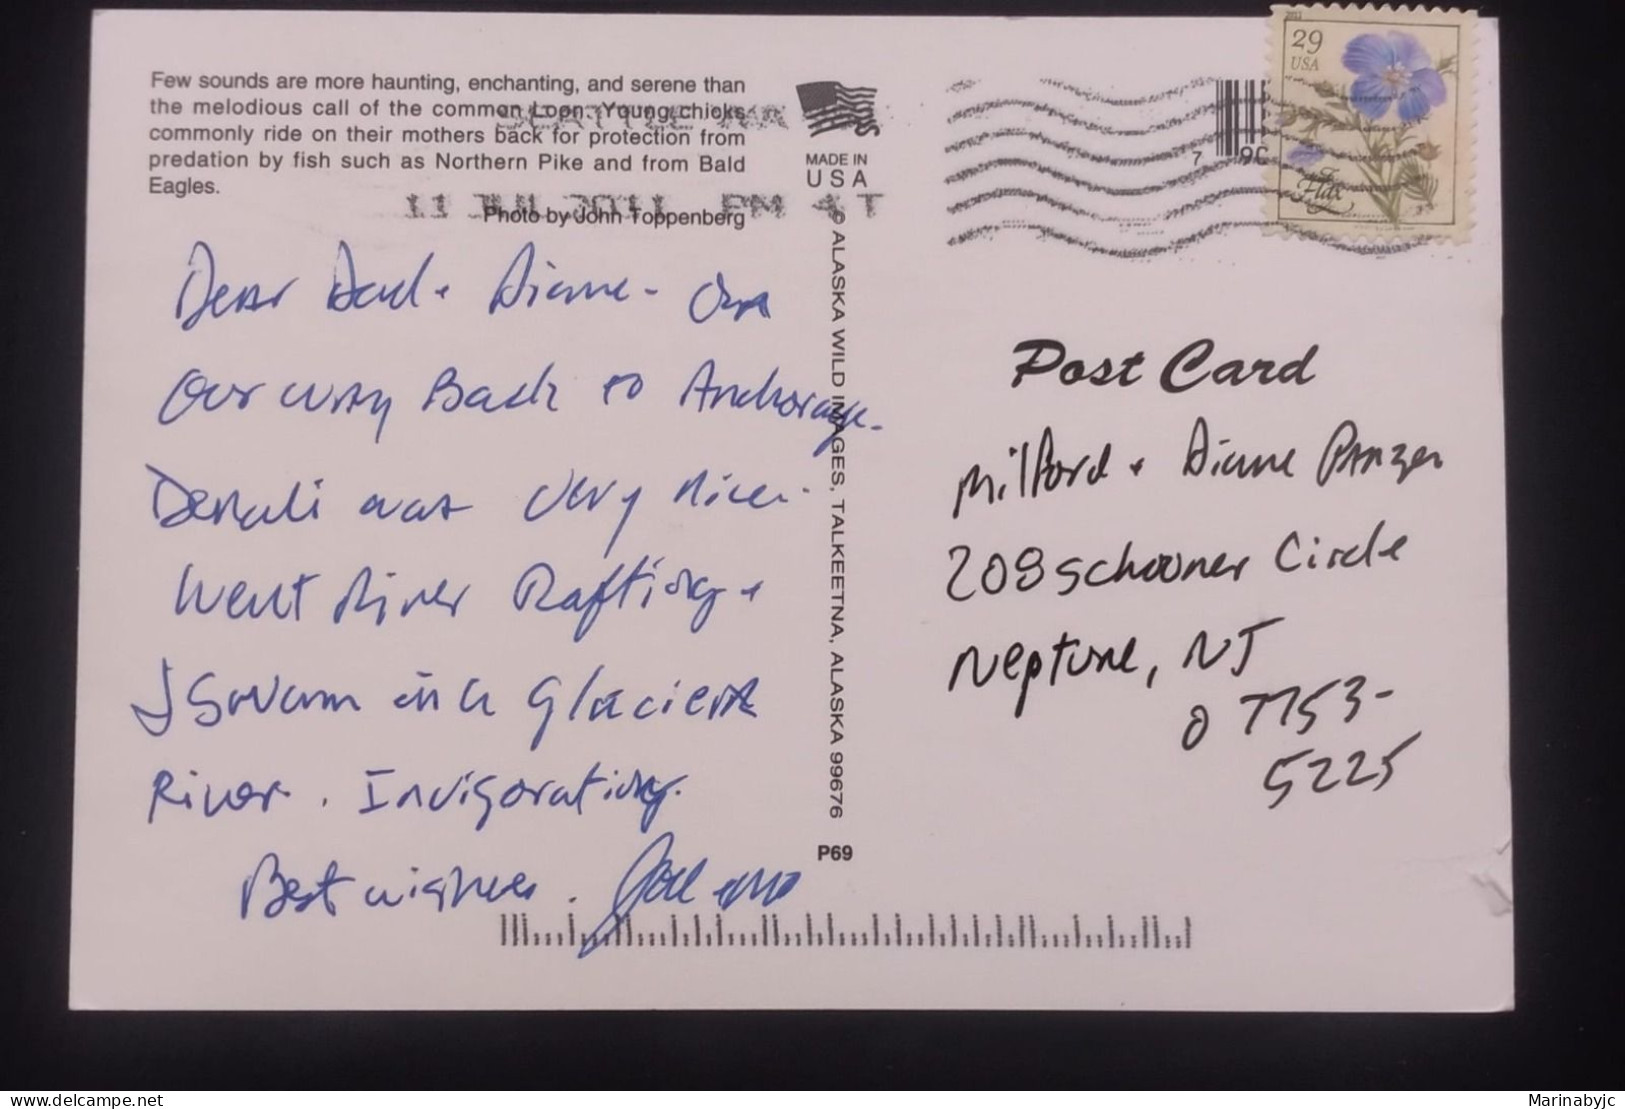 Few sounds are more haunting, enchanting, and serene than
the melodious call of the common Loon. Young chicks
commonly ride on their mothers back for protection from
predation by fish such as Northern Pike and from Bald
Eagles.
Photo by John Toppenberg
11 JUL 2011 PM
MADE IN
USA
© ALASKA WILD IMAGES, TALKEETNA, ALASKA 99676
P69
29
USA
Flax
Post Card
Dear Dad + Diane - On
Our way Back to Anchorage.
Denali was very nice.
Went River Rafting +
I Swam in a Glacier
River. Invigorating.
Best wishes.
Milford + Diane Panzer
208 Schooner Circle
Neptune, NJ
07753-
5225
Marinabyjc